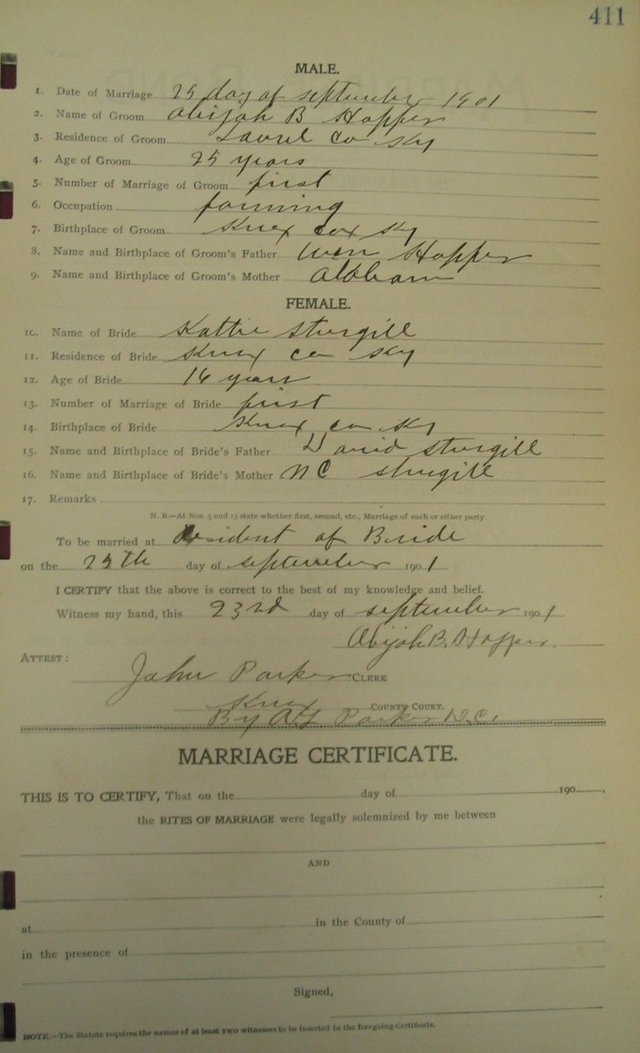 411
MALE.
1. Date of Marriage 25 day of september 1901
2. Name of Groom Abijah B Hopper
3. Residence of Groom Laurel Co Ky
4. Age of Groom 25 years
5. Number of Marriage of Groom first
6. Occupation farming
7. Birthplace of Groom Knox cox Ky
8. Name and Birthplace of Groom's Father Wm Hopper
9. Name and Birthplace of Groom's Mother
FEMALE.
10. Name of Bride Kattie Sturgill
11. Residence of Bride Knox co Ky
12. Age of Bride years
13. Number of Marriage of Bride first
14. Birthplace of Bride Knox co Ky
15. Name and Birthplace of Bride's Father David Sturgill
16. Name and Birthplace of Bride's Mother N C sturgill
17. Remarks
N. B.—At Nos. 5 and 13 state whether first, second, etc., Marriage of each or either party
To be married at Resident of Bride
on the 25th day of september 1901
I CERTIFY that the above is correct to the best of my knowledge and belief.
Witness my hand, this 23rd day of september 1901
Abijah B. Hopper.
ATTEST:
John Parker CLERK
Knox COUNTY COURT.
By Parker D.C.
MARRIAGE CERTIFICATE.
THIS IS TO CERTIFY, That on the day of 190 ,
the RITES OF MARRIAGE were legally solemnized by me between
AND
at in the County of
in the presence of
Signed,
NOTE.—The Statute requires the names of at least two witnesses to be inserted in the foregoing Certificate.